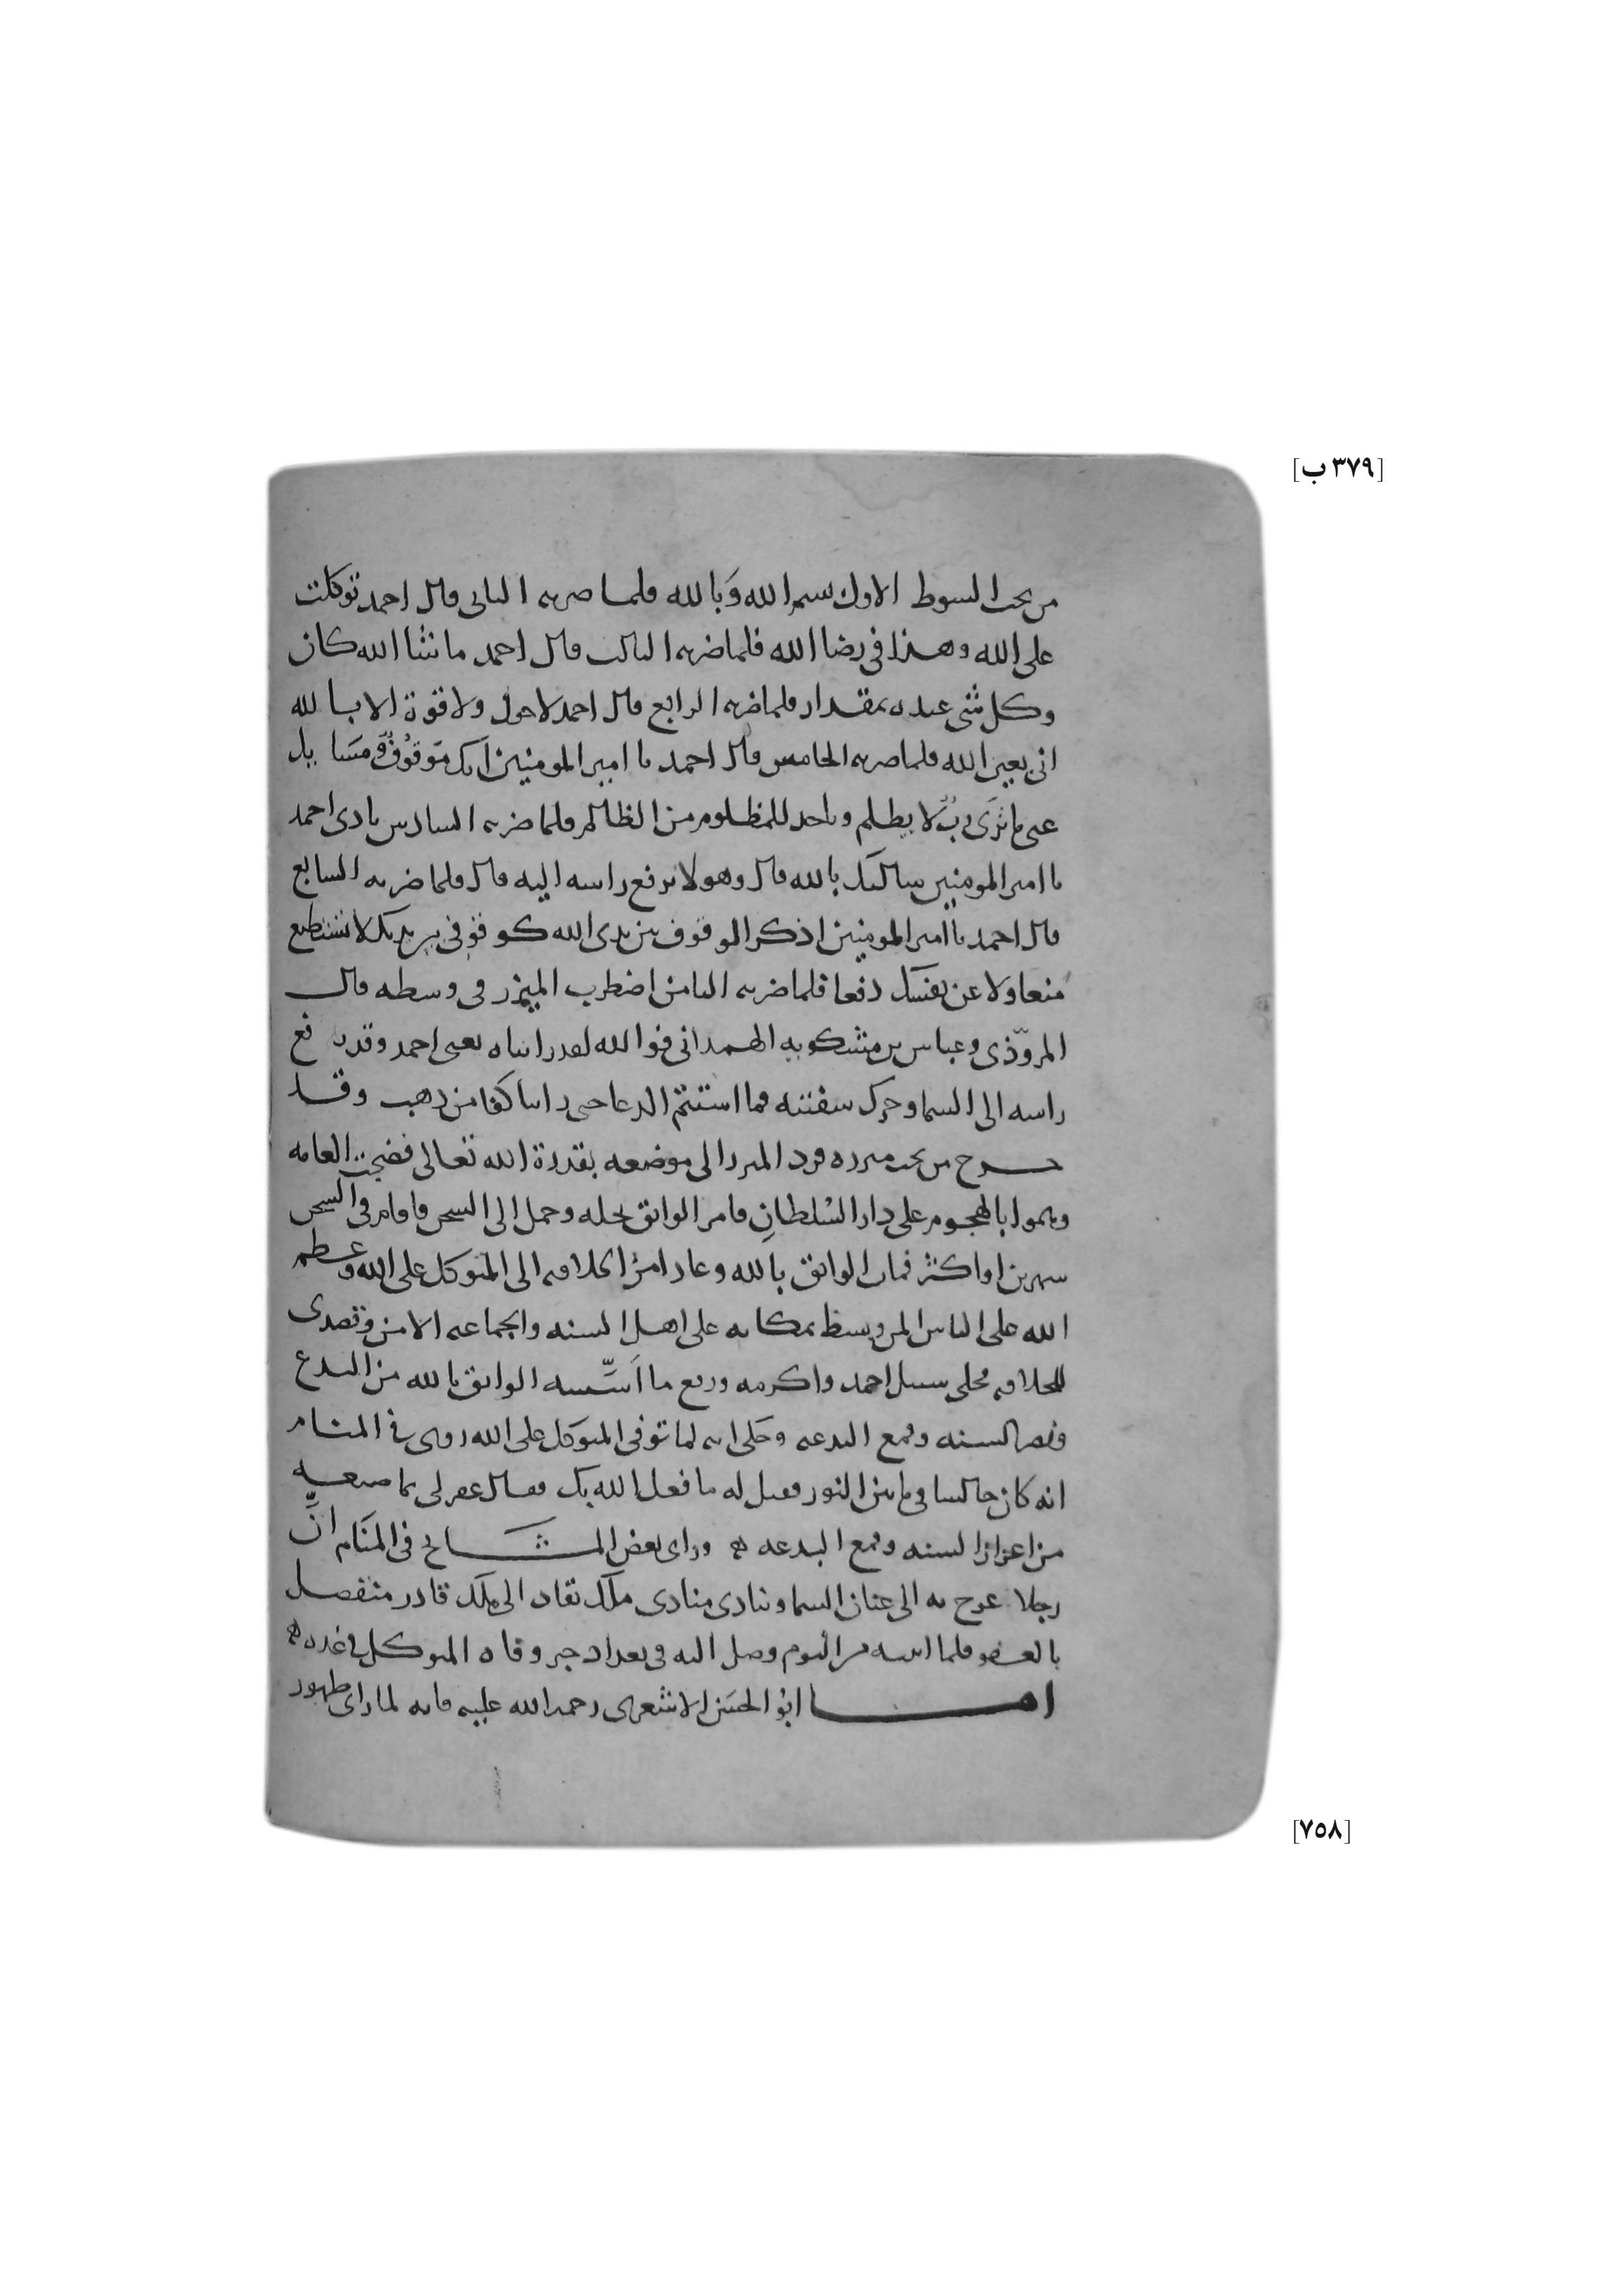 [٣٧٩ ب]
من تحت السوط الاول بسم الله وَبالله فلما ضربه الثانى قال احمد توكلت
على الله وهذا فى رضا الله فلما ضربه الثالث قال احمد ما شا الله كان
وكل شى عنده بمقدار فلما ضربه الرابع قال احمد لا حول ولا قوة الا بالله
انى بعين الله فلما ضربه الخامس قال احمد يا امير المومنين انك مَوقُوفٌ ومسَايل
عنى يظلم وياخد للمظلوم من الظالم فلما ضربه السادس نادى احمد
يا امير المومنين سالتك بالله قال وهو لا يرفع راسه اليه قال فلما ضربه السابع
قال احمد يا امير المومنين اذكر الوقوف بين يدى الله كوقوفى بين يديك لا تستطيع
منعا ولا عن نفسك دفعا فلما ضربه الثامن اضطرب الميزر فى وسطه قال
المروّذى وعباس بن مشكويه الهمدانى فوالله لقد رايناه يعنى احمد وقد رفع
راسه الى السما وحرك شفتيه فما استتم الدعا حتى راينا كفا من ذهب وقد
خرج من تحت ميزره فرد الميزر الى موضعه بقدرة الله تعالى فضجت العامه
وهموا بالهجوم على دار السُلطانِ فامر الواثق بحله وحمل الى السجن فاقام فى السجن
شهرين او اكثر فمات الواثق بالله وعاد امرُ الخلافه الى المتوكل على الله وعظم
الله على الناس وبسط بمكانه على اهل السنه والجماعه الامن وتصدى
للخلافه فخلى سبيل احمد واكرمه ورفع ما اَسَّسه الواثق بالله من البدع
ونصر السنه وقمع البدعه وحكى انه لما توفى المتوكل على الله روى فى المنام
انه كان جالسا فى النور فقيل له ما فعل الله بك فقال غفر لى بما صنعته
من اعزاز السنه وقمع البدعه ه وراى بعض المشايخ فى المنَام انَّ
رجلا عرج به الى عنان السما ونادى منادى ملك يقاد الى ملك قادر متفضل
بالعفو فلما انتبه من النوم وصل اليه فى بغداد خبر وفاه المتوكل فى غده ه
امـا ابو الحسَن الاشعرى رحمه الله عليه فانه لما راى ظهور
[٧٥٨]